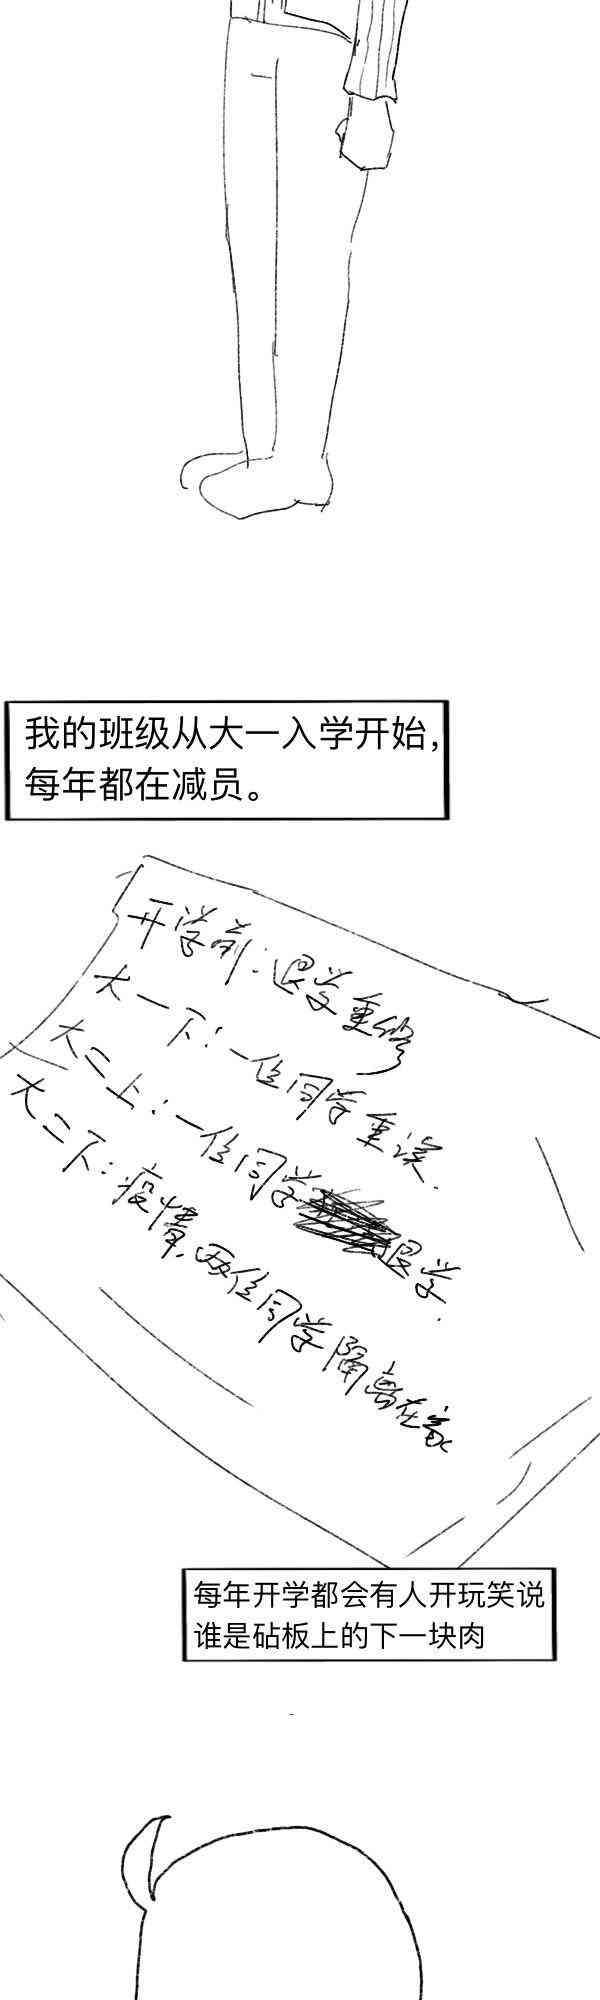 我的班级从大一入学开始，
每年都在减员。
开学前：退学重修
大一下：一位同学重读.
大二上：一位同学退学.
大二下：疫情，两位同学隔离在家
每年开学都会有人开玩笑说
谁是砧板上的下一块肉